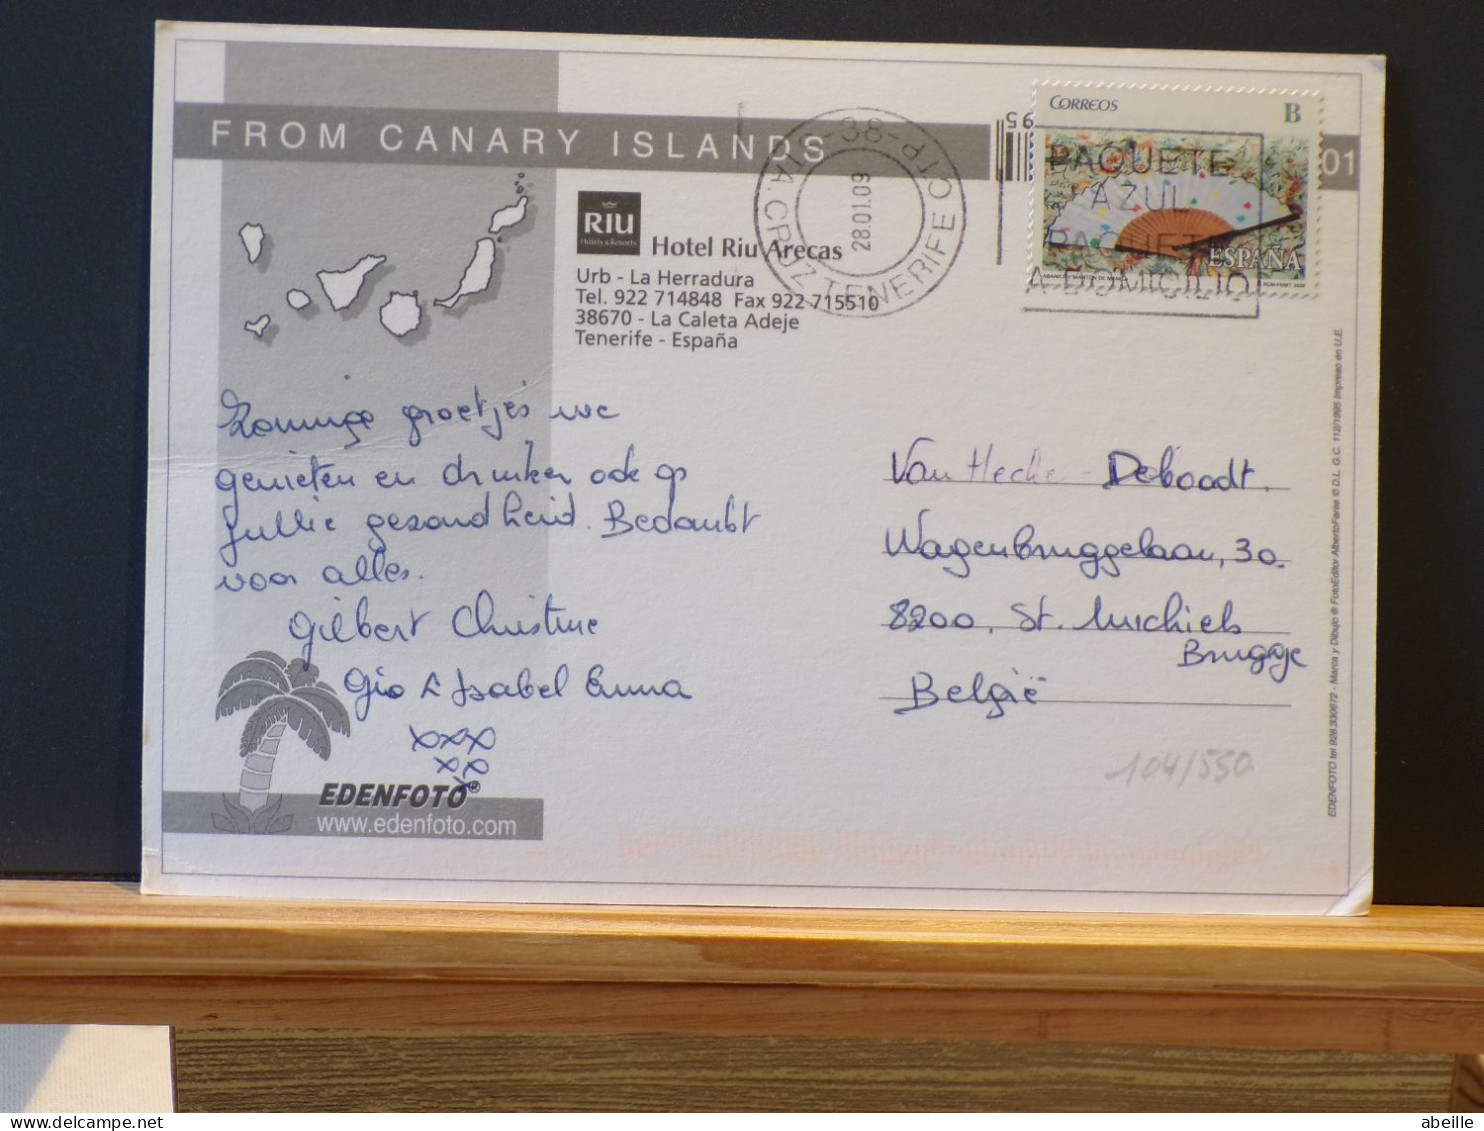 FROM CANARY ISLANDS
01
RIU
Hotels & Resorts
Hotel Riu Arecas
Urb - La Herradura
Tel. 922 714848 Fax 922 715510
38670 - La Caleta Adeje
Tenerife - España
CTP-38-STA.CRUZ TENERIFE
28.01.09
95
PAQUETE
AZUL
PAQUETE
A DOMICILIO
CORREOS B
ESPAÑA
Zonnige groetjes we
genieten en drinken ook op
jullie gezondheid. Bedankt
voor alles.
Gilbert Christine
Gio & Isabel Emma
xxx
xx
x
EDENFOTO®
www.edenfoto.com
Van Hecke - Deboodt.
Wagenbruggelaan, 30.
8200. St. Michiels
Brugge
België
104/550
EDENFOTO tel 928.330672 - Marca y Dibujo ® FotoEditor AlbertoFaries © D.L. G.C. 112/1995 Impreso en U.E.
abeille